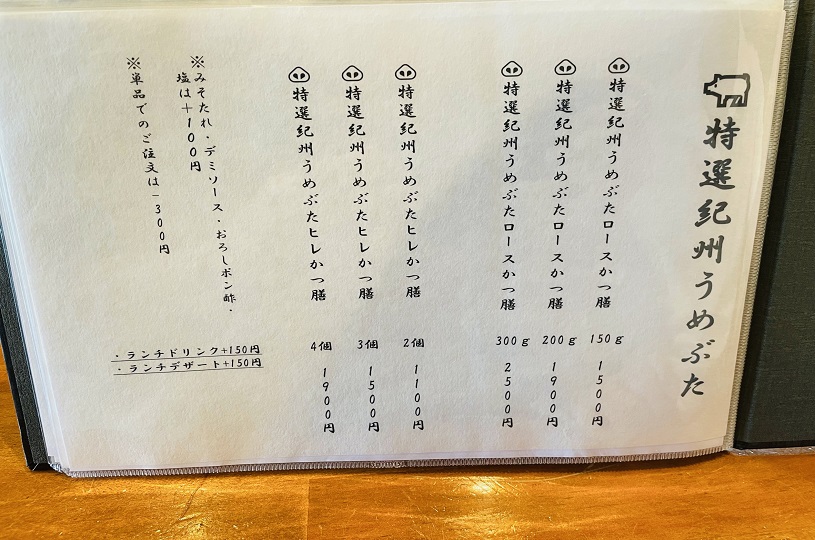 特選紀州うめぶた
特選紀州うめぶたロースかつ膳 150g 1500円
特選紀州うめぶたロースかつ膳 200g 1900円
特選紀州うめぶたロースかつ膳 300g 2500円
特選紀州うめぶたヒレかつ膳 2個 1100円
特選紀州うめぶたヒレかつ膳 3個 1500円
特選紀州うめぶたヒレかつ膳 4個 1900円
※みそたれ・デミソース・おろしポン酢・
塩は+100円
※単品でのご注文は-300円
・ランチドリンク+150円
・ランチデザート+150円